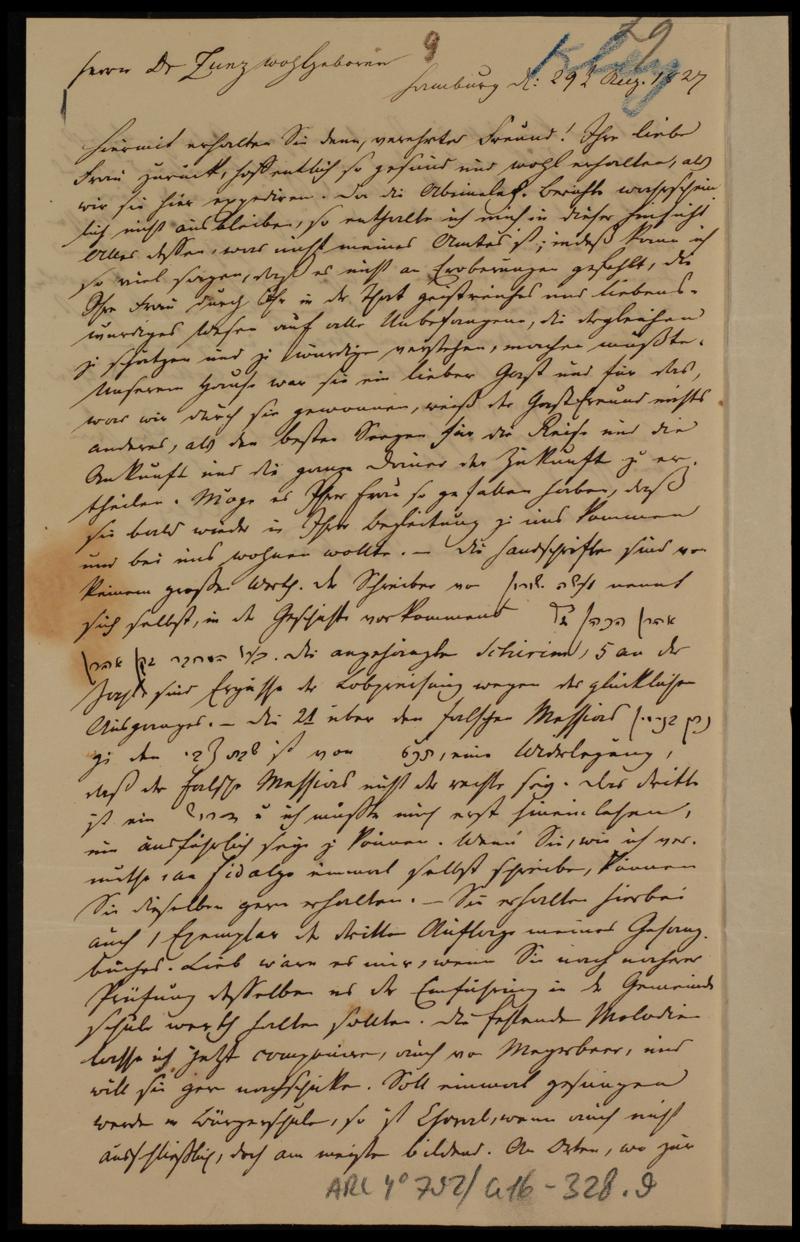 79
9
Kley
Herrn Dr Zunz Wohlgeboren
Hamburg d: 29t Aug. 1827
Hiermit erhalten Sie denn, verehrter Freund! Ihre liebe
Frau zurück, hoffentlich so gesund und wohl erhalten, als
wir sie hier expediren. Da die Berichte wahrschein
lich nicht ausbleiben, so enthalte ich mich in dieser Hinsicht
alles dessen, was nicht meines Amtes ist; indeß kann ich
so viel sagen, daß es nicht an Eroberungen gefehlt, die
Ihre Frau durch Ihr in der That geistreiches und liebens-
würdiges Wesen auf alle Unbefangene, die dergleichen
zu schätzen und zu würdigen verstehen, machen mußte.
Unserem Hause war sie ein lieber Gast und für das,
was wir durch sie gewonnen, weiß der Gastfreund nichts
anderes, als den besten Seegen für die Reise und die
Ankunft und die ganze Dauer der Zukunft zu er-
theilen. Möge es Ihrer Frau so gefallen haben, daß
sie bald wieder in Ihrer Begleitung zu uns kommen
und bei uns wohnen wollte. — Die Handschriften sind von
keinem großen Werth. Der Schreiber von nennt
sich selbst, in der Geschichte vorkommend אהרן הכהן
אהרן. Die angehängten Schirim, 5 an der
Zahl sind Ergüsse der Lobpreisung wegen des glücklichen
Ausganges. — Die 2t über den falschen Messias
צבי ist von, eine Widerlegung,
daß der falsche Messias nicht der rechte sey. Das dritte
ist ein u ich müßte mich erst hineinlesen,
um ausführlich seyn zu können. Wenn Sie, wie ich ver-
muthe, an Fidalgo einmal selbst schreiben, können
Sie dieselben gern erhalten. — Sie erhalten hierbei
auch 1 Exemplar der dritten Auflage meines Gesang-
buches. Lieb wäre es mir, wenn Sie nach näherer
Prüfung desselben es der Einführung in der Gemeinde
schule werth halten sollten. Die fehlenden Melodien
lasse ich jetzt componiren, auch von Meyerbeer, und
will sie gern nachschicken. Soll einmal gesungen
werden in Bürgerschulen, so ist Choral, wenn auch nicht
ausschließlich, doch am meisten bildend. An Orten, wo zur
ARC 4° 792/G16-328.9